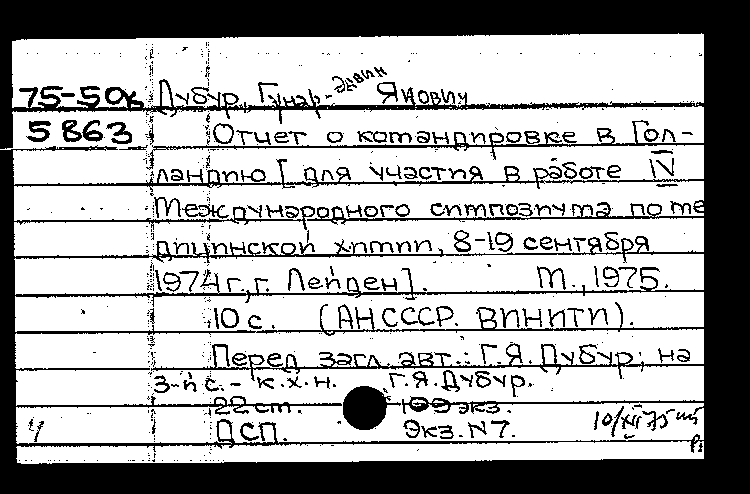 75-50к Дубур, Гунар-Эдвин Янович
5863 Отчет о командировке в Гол-
ландию [для участия в работе IV
Международного симпозиума по ме
дицинской химии, 8-19 сентября
1974 г., г. Лейден]. М., 1975.
10 с. (АН СССР. ВИНИТИ).
Перед загл. авт.: Г.Я. Дубур; на
3-й с. - к.х.н. Г.Я. Дубур.
22 cm. 109 экз.
4 ДСП. Экз. N 7. 10/XII 75